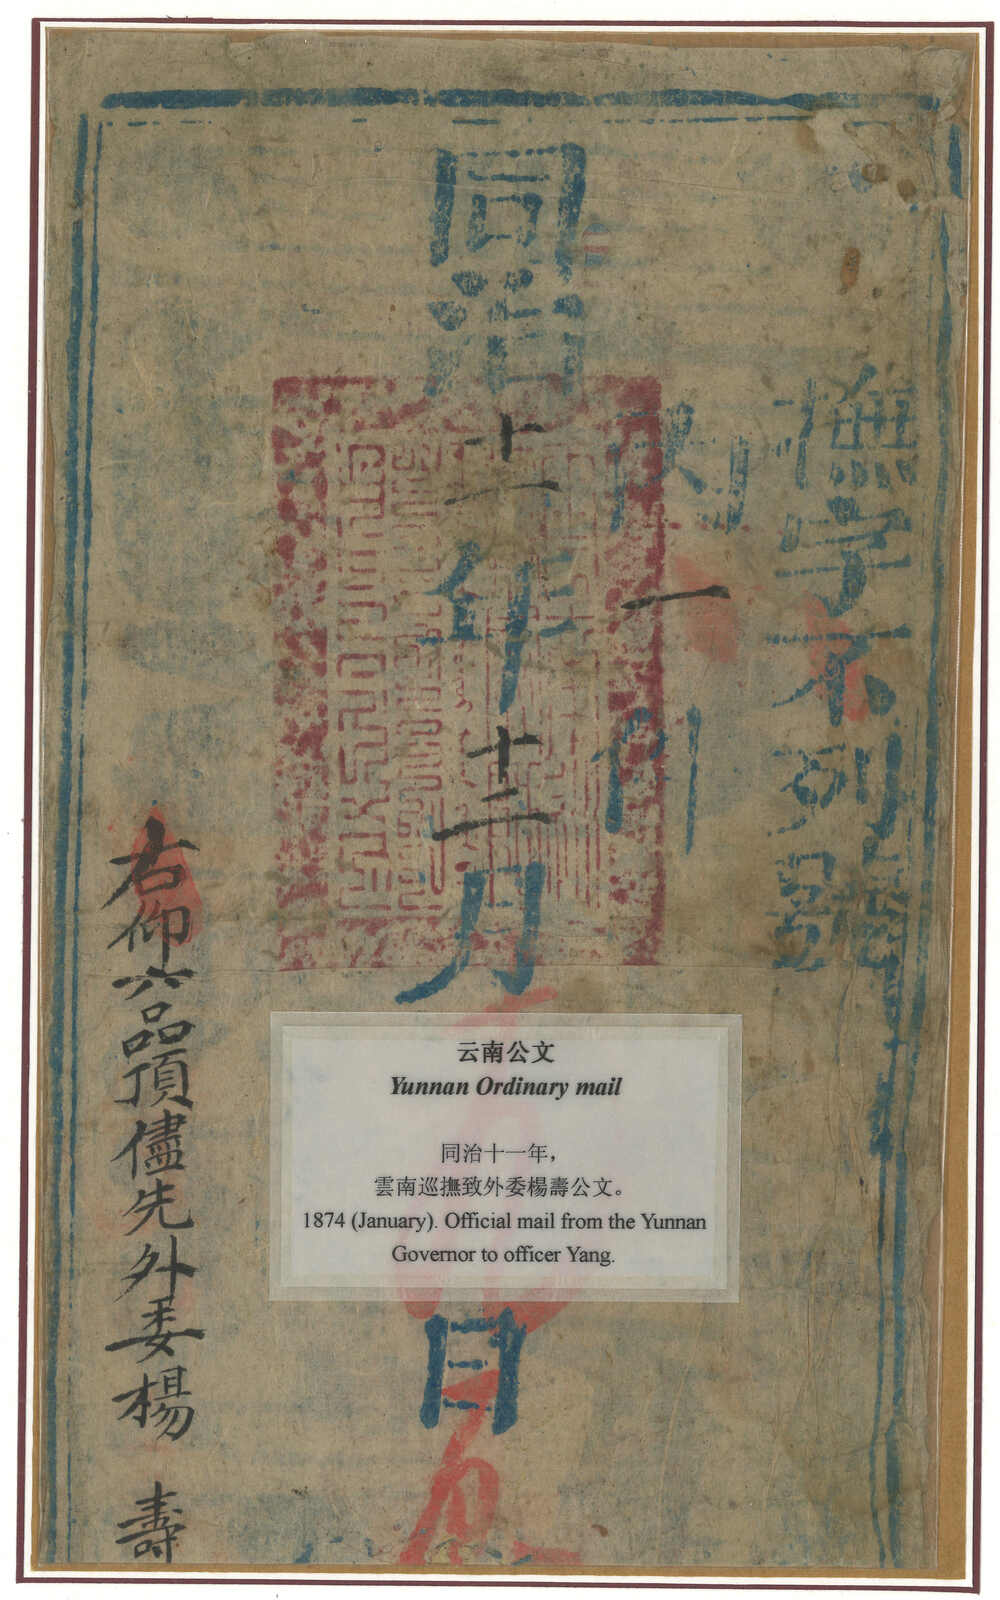 撫字不列號
內一件
同治十一年十二月
日
右仰六品頂儘先外委楊 壽
云南公文
Yunnan Ordinary mail
同治十一年，
雲南巡撫致外委楊壽公文。
1874 (January). Official mail from the Yunnan
Governor to officer Yang.